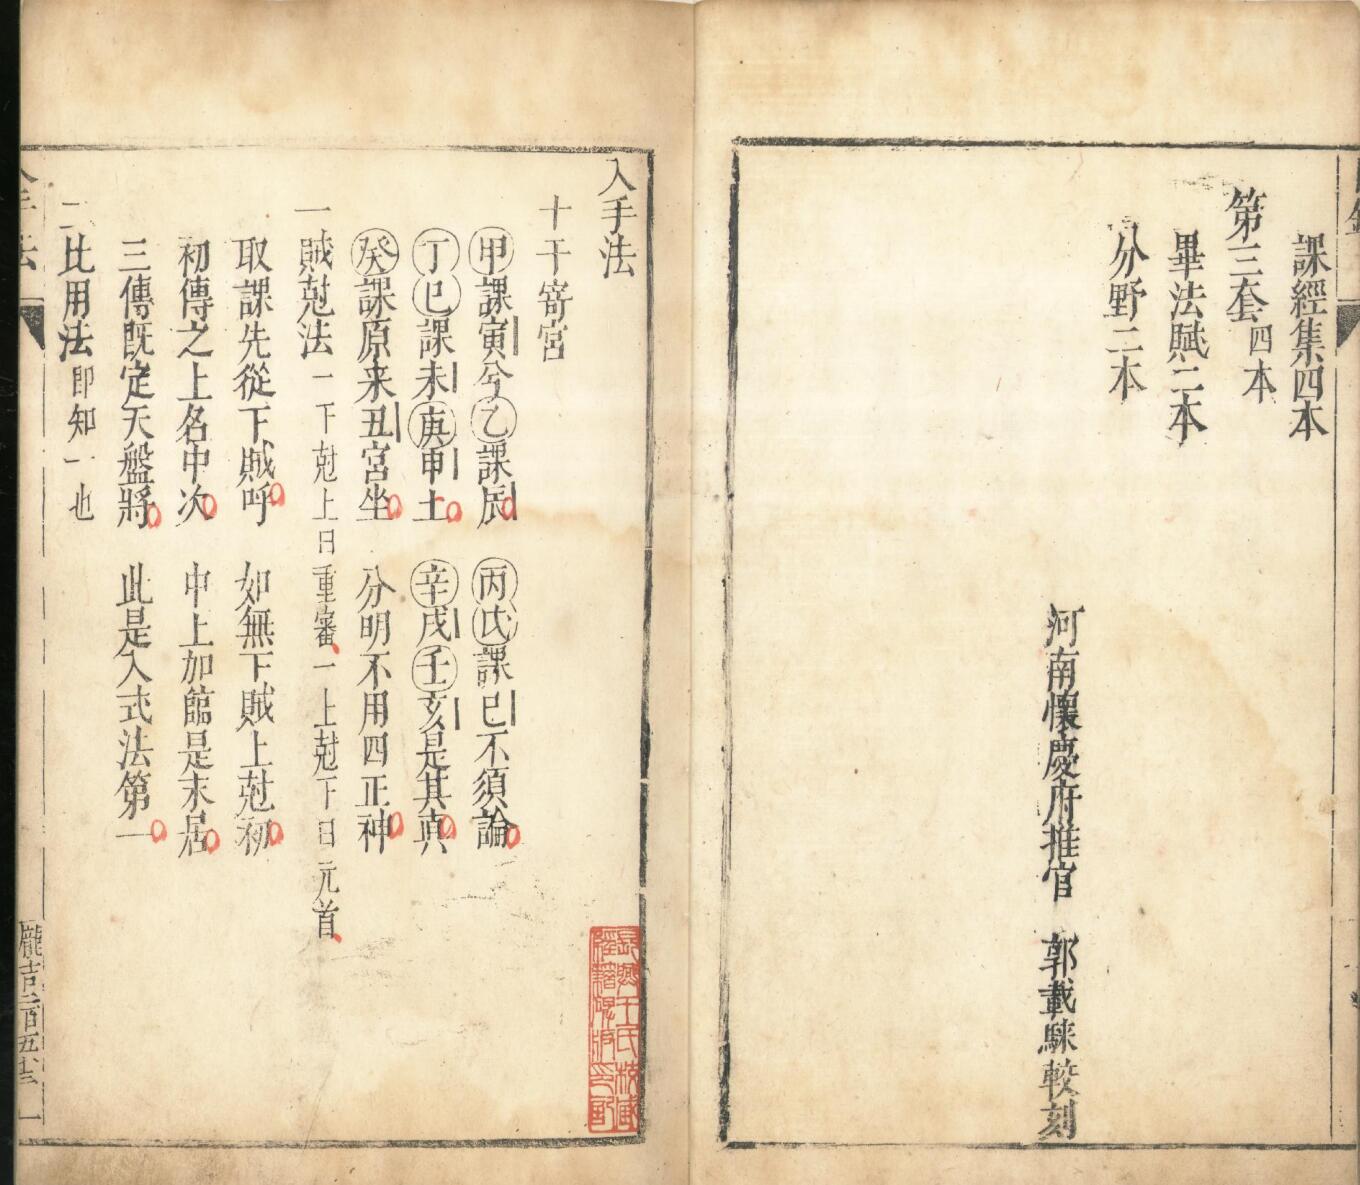 課經集四本
第三套四本
畢法賦二本
分野二本
河南懷慶府推官　郭載騋較刻
入手法
十干寄宮
甲課寅兮乙課辰　丙戊課巳不須論
丁己課未庚申土　辛戌壬亥是其真
癸課原来丑宮坐　分明不用四正神
一賊尅法一下尅上曰重審一上尅下曰元首
取課先從下賊呼　如無下賊上尅初
初傳之上名中次　中上加臨是末居
三傳既定天盤將　此是入式法第一
二比用法即知一也
入手法